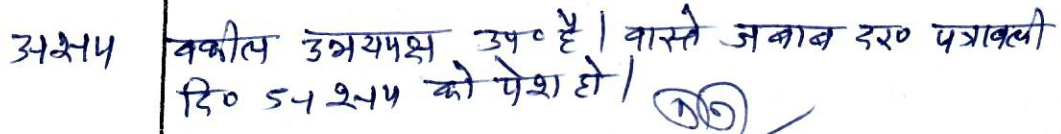 वकील उभयपक्ष उप० है। वास्ते जबाब दर० पत्रावली
दि० को पेश हो।